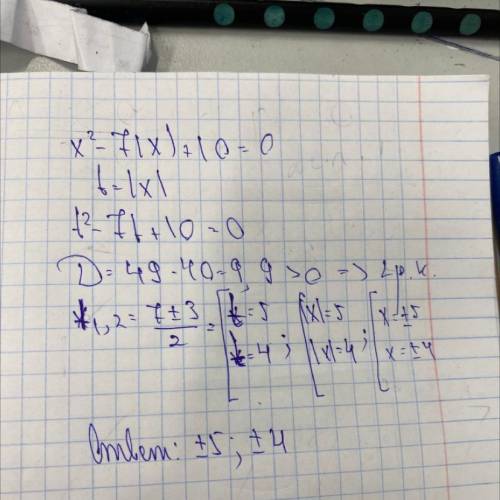 x² - 7|x| + 10 = 0
t = |x|
t² - 7t + 10 = 0
D = 49 - 40 = 9, 9 > 0 => 2 р.к.
t₁,₂ = (7 ± 3)/2 = [t = 5; [|x| = 5; [x = ±5
[t = 4; [|x| = 4; [x = ±4
Ответ: ±5; ±4